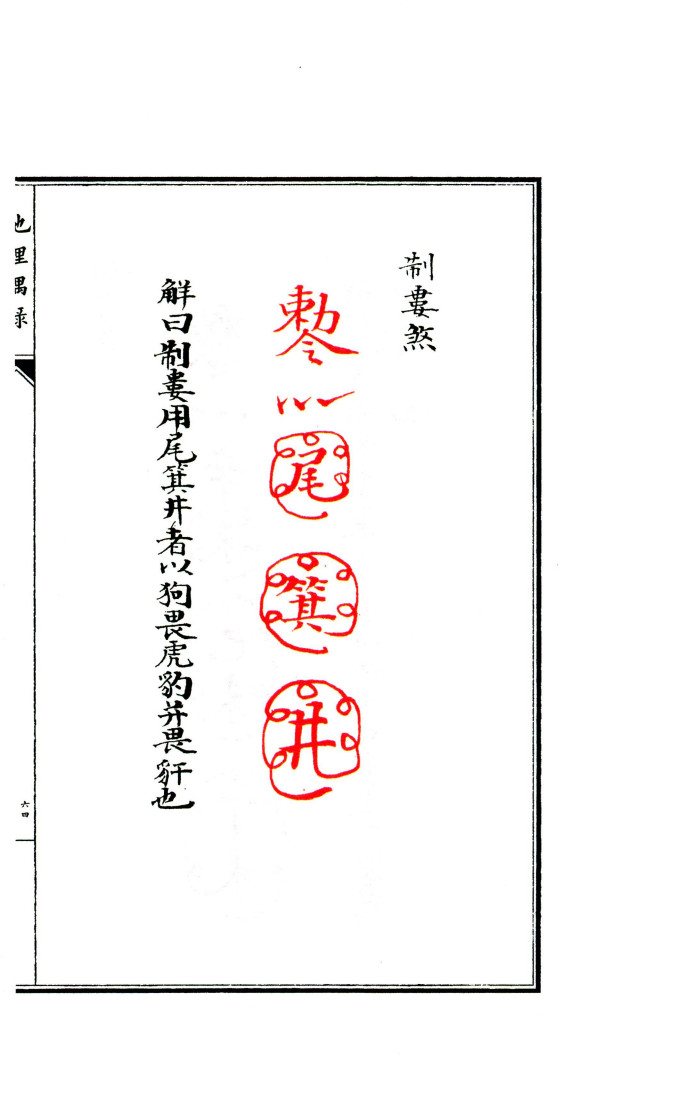 制婁煞
勅令
尾
箕
井
解曰制婁用尾箕井者以狗畏虎豹并畏豻也
地理偶录
六四